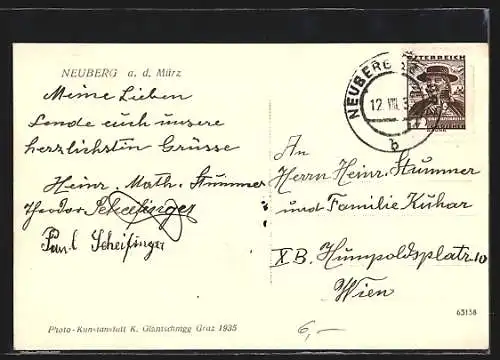 NEUBERG a. d. Mürz
Meine Lieben
Sende euch unsere
herzlichsten Grüsse
Heinr. Math. Stummer
Theodor Scheifinger
Paul Scheifinger
Photo-Kunstanstalt K. Glantschnigg Graz 1935
ÖSTERREICH
NEUBERG
12. VIII. 3
b
12
An
Herrn Heinr. Stummer
und Familie Kuhar
XB. Humpoldsplatz 10
Wien
65158
6,-